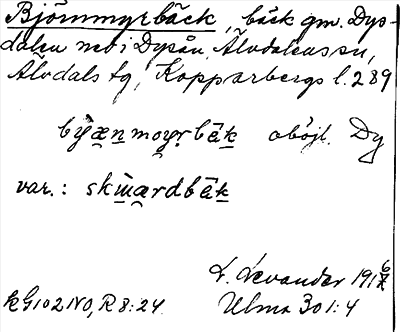 Björnmyrbäck, bäck gm. Dys-
dalen ned i Dysån, Älvdalens sn,
Älvdals tg, Kopparbergs l. 289
by̆æ̯n̠moy̯r̥bä̆k̠ oböjl. Dy
var.: skẅærdbä̆k̠
L. Levander 191
kG102NO, R8:24. Ulma 301:4